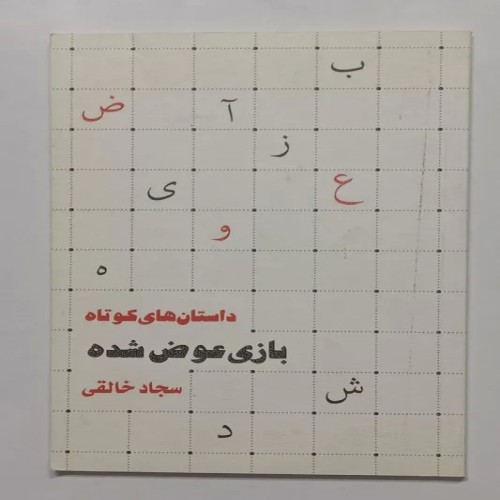 ب
آ ض
ز
ع ی
و
ه
داستان‌های کوتاه
بازی عوض شده
سجاد خالقی
ش
د